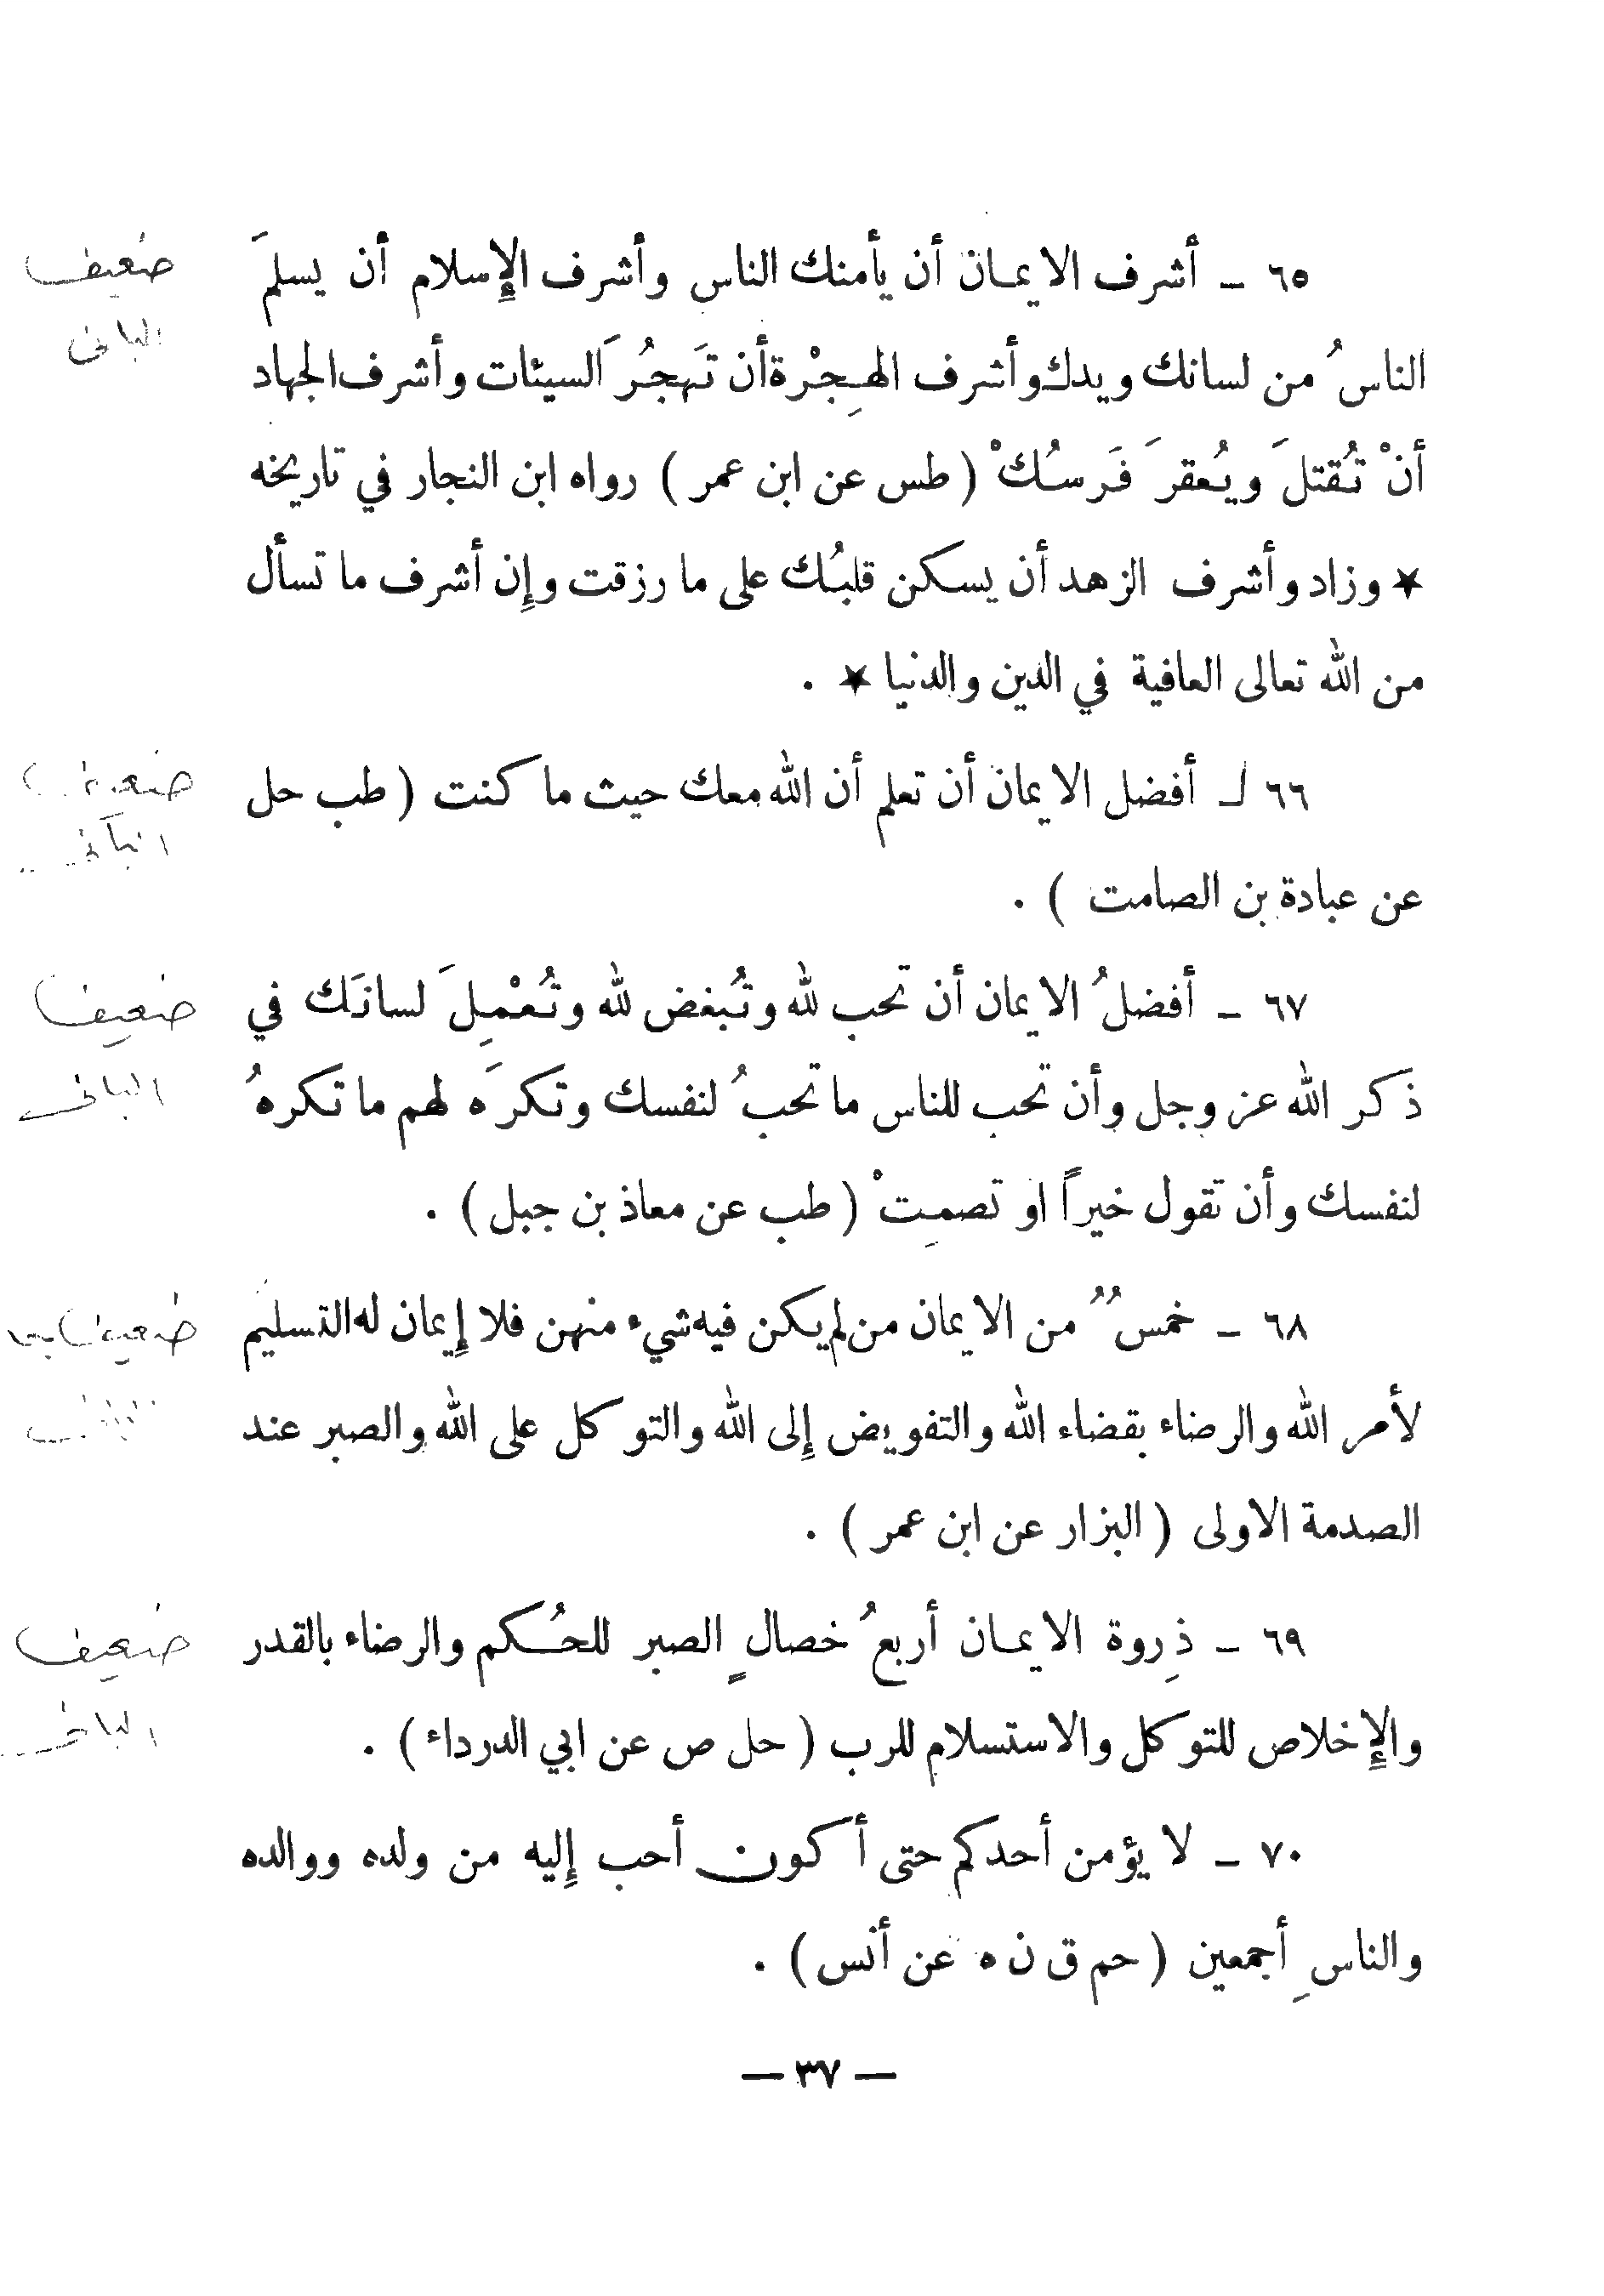 ٦٥ ـ أشرف الايمـان أن يأمنك الناس وأشرف الإسلام أن يسلمَ
الناسُ من لسانك ويدك وأشرف الهِـجْرة أن تَهجُرَ السيئات وأشرف الجهاد
أنْ تُقتلَ ويُعقرَ فَرسُكْ ( طس عن ابن عمر ) رواه ابن النجار في تاريخه
★ وزاد وأشرف الزهد أن يسكن قلبُك على ما رزقت وإن أشرف ما تسأل
من الله تعالى العافية في الدين والدنيا ★ .
٦٦ ـ أفضل الايمان أن تعلم أن الله معك حيث ما كنت ( طب حل
عن عبادة بن الصامت ) .
٦٧ ـ أفضلُ الايمان أن تحب لله وتُبغض لله وتُعْمِلَ لسانَك في
ذكر الله عز وجل وأن تحب للناس ما تحبُ لنفسك وتكرَه لهم ما تكرهُ
لنفسك وأن تقول خيراً او تصمِتْ ( طب عن معاذ بن جبل ) .
٦٨ ـ خمسٌ من الايمان من لم يكن فيه شيء منهن فلا إيمان له التسليم
لأمر الله والرضاء بقضاء الله والتفويض إلى الله والتوكل على الله والصبر عند
الصدمة الاولى ( البزار عن ابن عمر ) .
٦٩ ـ ذِروة الايمـان أربعُ خصالٍ الصبر للحُـكم والرضاء بالقدر
والإخلاص للتوكل والاستسلام للرب ( حل ص عن ابي الدرداء ) .
٧٠ ـ لا يؤمن أحدكم حتى أكون أحب إليه من ولده ووالده
والناسِ أجمعين ( حم ق ن ه عن أنس ) .
— ٣٧ —
ضعيف
البانى
ضعيف
البانى
ضعيف
البانى
ضعيف
ضعيف
البانى